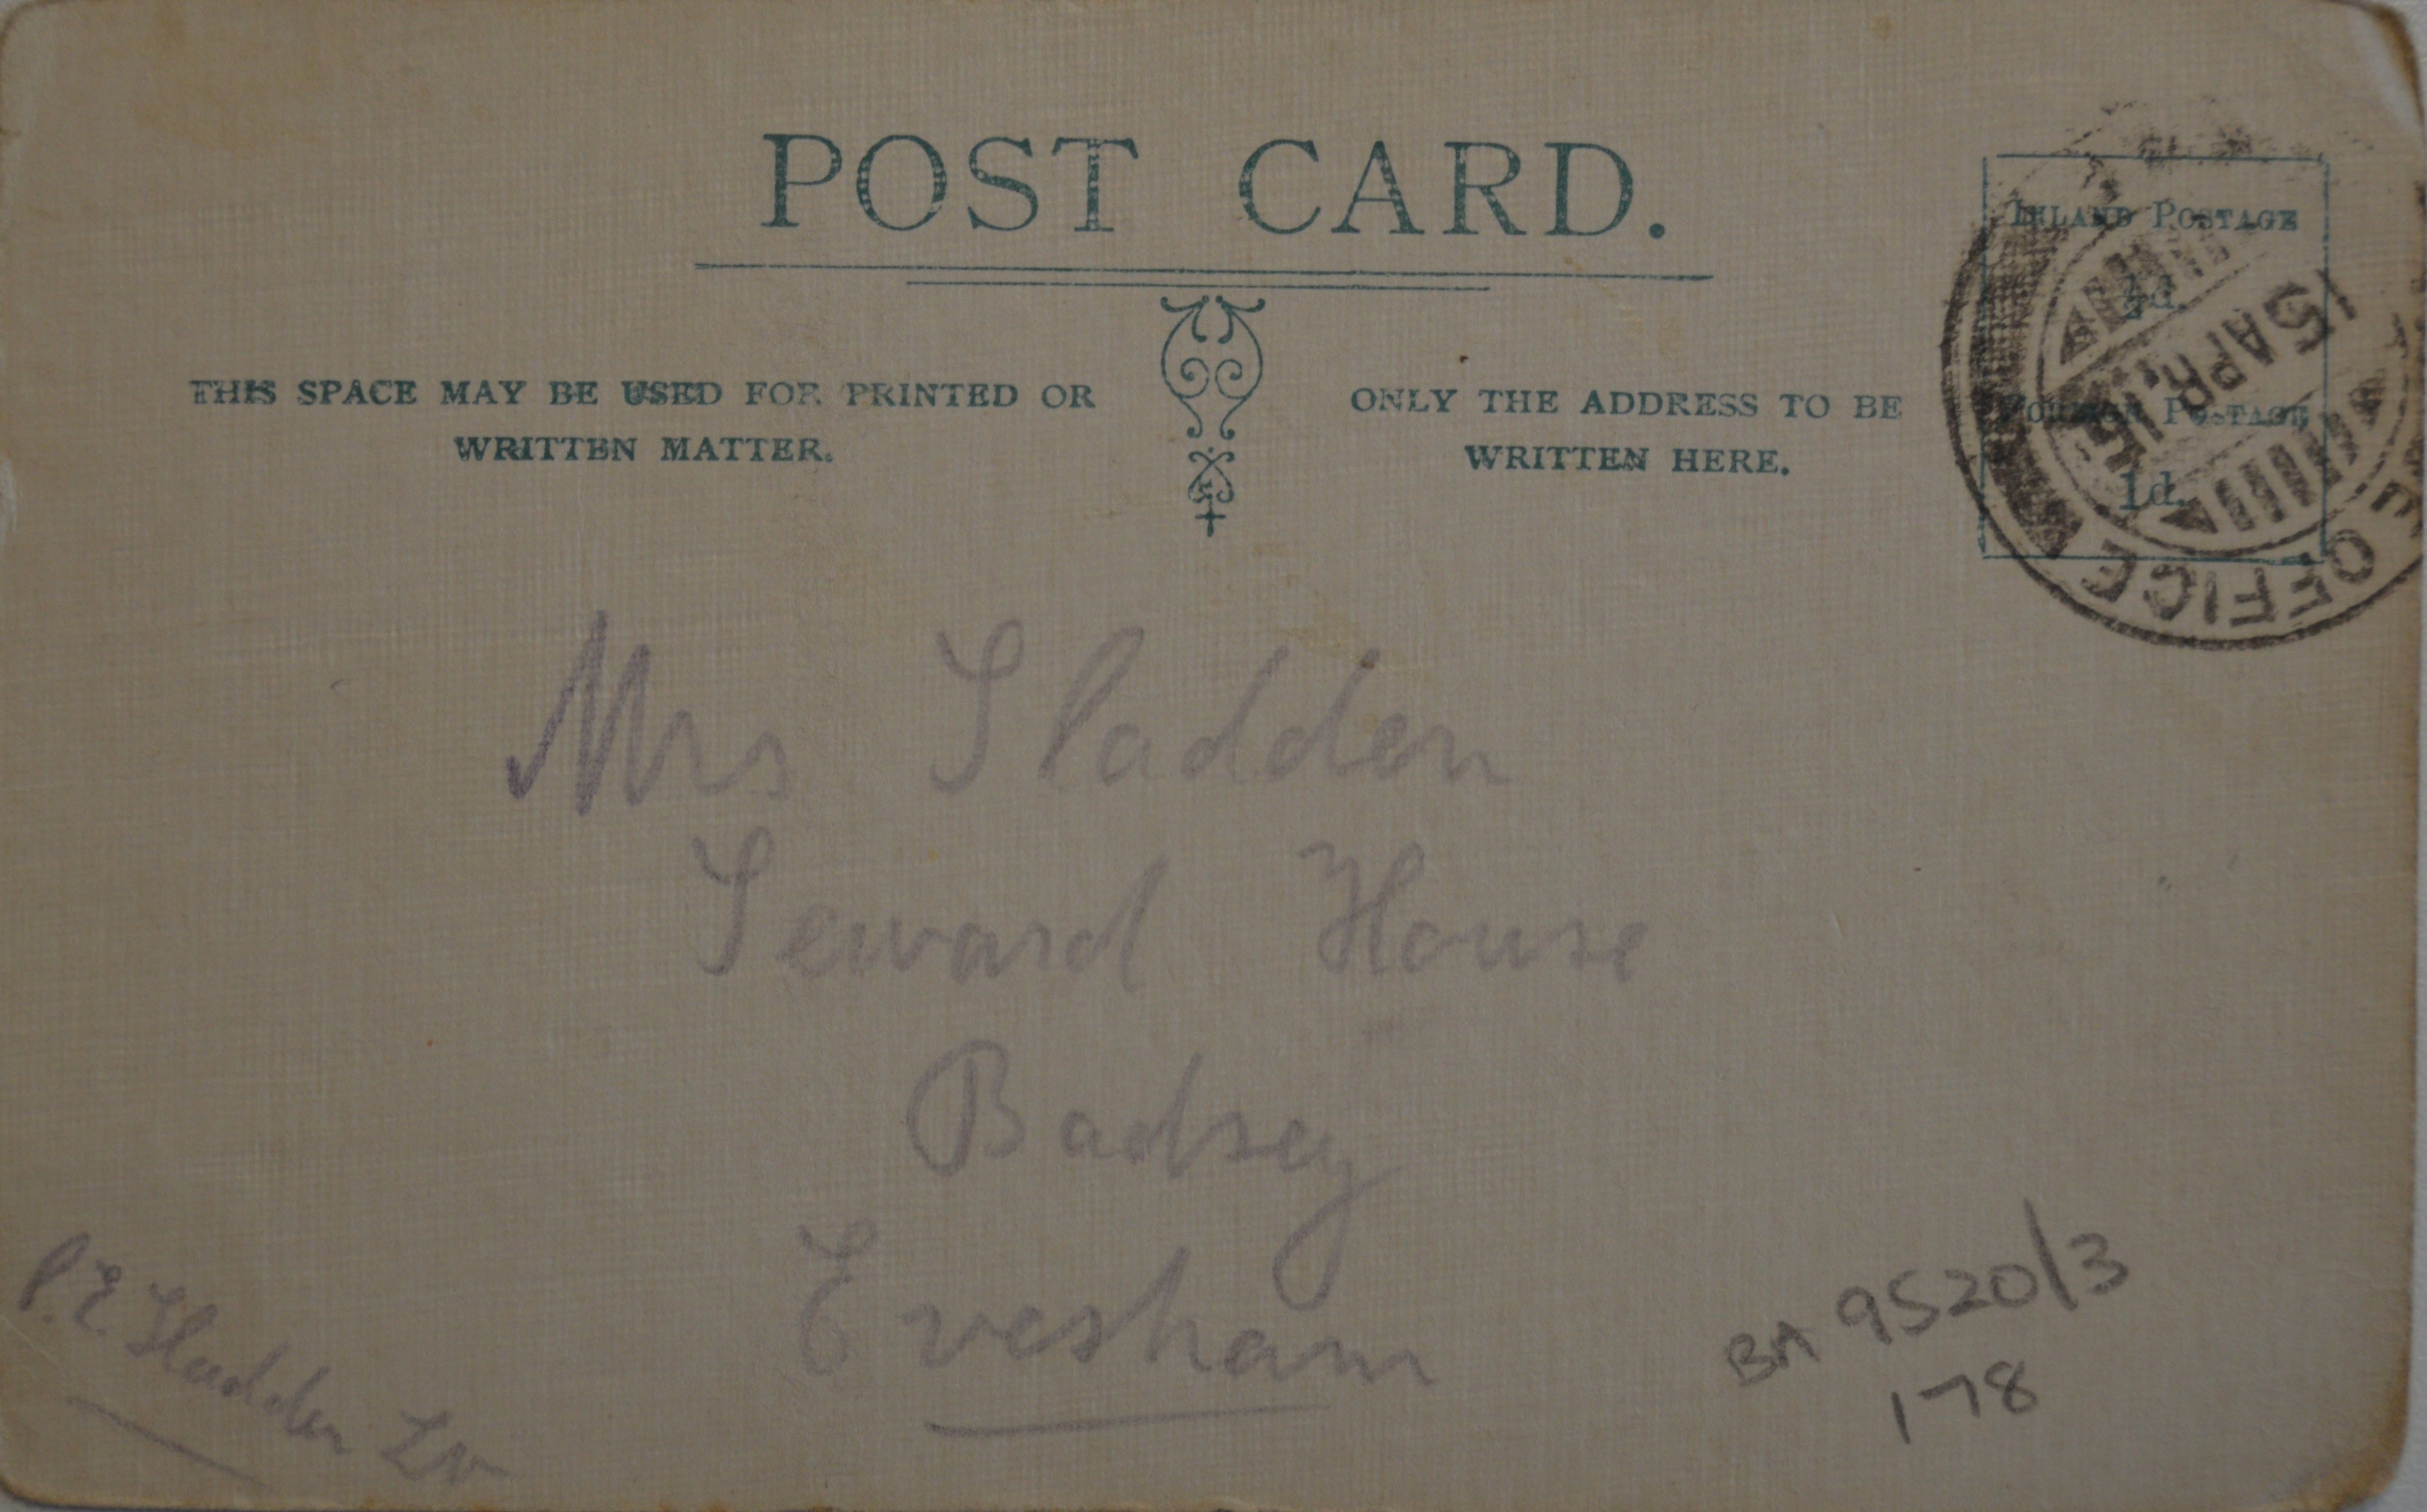 POST CARD.
INLAND POSTAGE
½d.
THIS SPACE MAY BE USED FOR PRINTED OR
WRITTEN MATTER.
ONLY THE ADDRESS TO BE
WRITTEN HERE.
FOREIGN POSTAGE
1d.
15 APR. 15
OFFICE
Mrs Sladden
Seward House
Badsey
Evesham
C.E. Sladden Lt
BA 9520/3
178